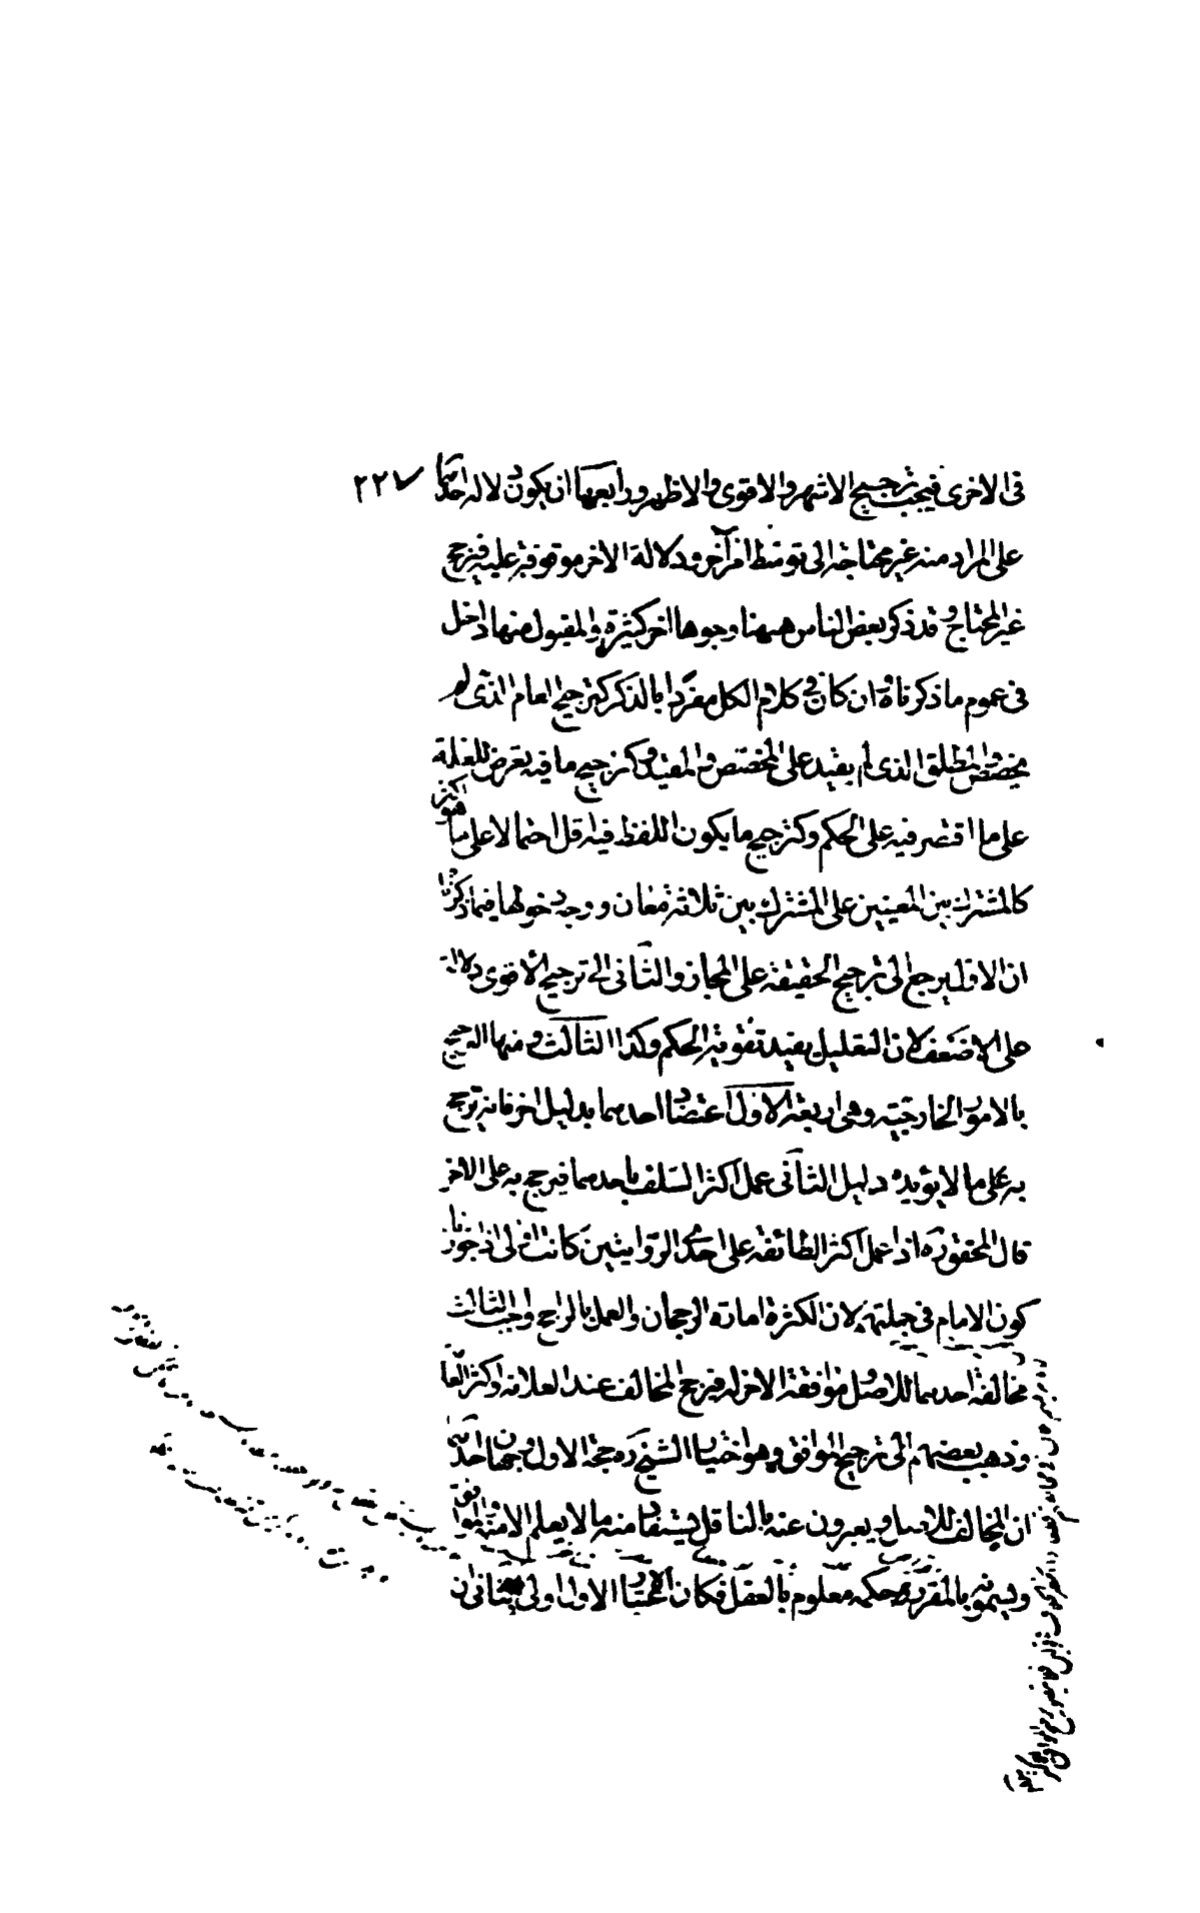 ٢٢٧
فى الاخرى فيجب ترجيح الاشهر والاقوى والاظهر ورابعها ان يكون دلالة احدهما
على المراد منه غير محتاجة الى توسّط امر آخر ودلالة الاخر موقوفة عليه فيرجح
غير المحتاج وقد ذكر بعض الناس ههنا وجوها اخر كثيرة والمقبول منها داخل
فى عموم ما ذكرناه وان كان فى كلام الكل مفردا بالذكر كترجيح العام الذى لم
يخصص والمطلق الذى لم يقيد على المخصص والمقيد وكترجيح ما فيه تعرض للعلة
على ما اقتصر فيه على الحكم وكترجيح ما يكون اللفظ فيه اقل احتمالا على ما هو اكثر
كالمشترك بين المعنيين على المشترك بين ثلاثة معان ووجه دخولها فيما ذكرنا
ان الاول يرجع الى ترجيح الحقيقة على المجاز والثانى الى ترجيح الاقوى دلالة
على الاضعف لان التعليل يفيد تقوية الحكم وكذا الثالث ومنها الترجيح
بالامور الخارجية وهى اربعة الاول اعتضاد احدهما بدليل اخر فانه يرجح
به على ما لا يؤيده دليل الثانى عمل اكثر السلف باحدهما فيرجح به على الاخر
قال المحقق ره اذا عمل اكثر الطائفة على احدى الروايتين كانت اولى اذا جوزنا
كون الامام فى جملتهم لان الكثرة امارة الرجحان والعمل بالراجح واجب الثالث
مخالفة احدهما للاصل وموافقة الاخر له فيرجح المخالف عند العلامة واكثر العامة
وذهب بعضهم الى ترجيح الموافق وهو اختيار الشيخ ره حجة الاول وجهان احدهما
ان المخالف للاصل ويعبرون عنه بالناقل يستفاد منه ما لا يعلم الا منه والموافق
ويسمونه بالمقرر حكمه معلوم بالعقل فكان اعتبار الاول اولى والثانى ان